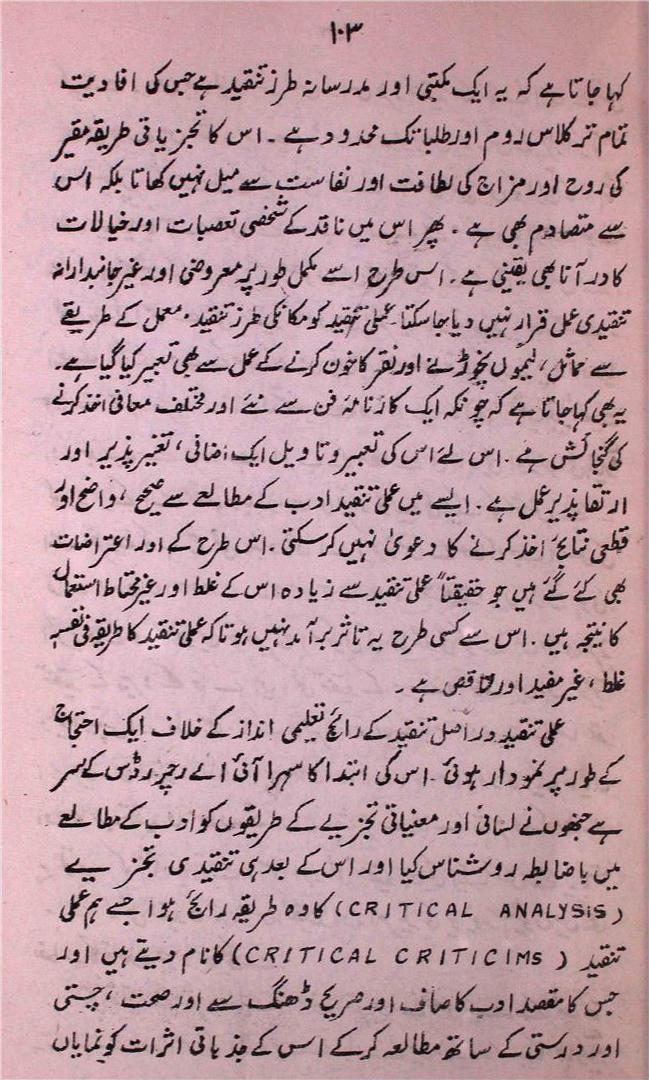 ۱۰۳
کہا جاتا ہے کہ یہ ایک مکتبی اور مدرسانہ طرز تنقید ہے جس کی افادیت
تمام تر کلاس روم اور طلبا تک محدود ہے ۔ اس کا تجزیاتی طریقہ
کی روح اور مزاج کی لطافت اور نفاست سے میل نہیں کھاتا بلکہ اس
سے متصادم بھی ہے ۔ پھر اس میں ناقد کے شخصی تعصبات اور خیالات
کا در آنا بھی یقینی ہے ۔ اس طرح اسے مکمل طور پر معروضی اور غیر جانبدارانہ
تنقیدی عمل قرار نہیں دیا جا سکتا ۔ عملی تنقید کو مکانکی طرز تنقید ۔ معمل کے طریقے
سے مماثل ، لیموں نچوڑنے اور نقر کا خون کرنے کے عمل سے بھی تعبیر کیا گیا ہے ۔
یہ بھی کہا جاتا ہے کہ چونکہ ایک کارنامۂ فن سے نئے اور مختلف معافی اخذ کرنے
کی گنجائش ہے ۔ اس لئے اس کی تعبیر و تاویل ایک اضافی ، تغیر پذیر اور
ارتقا پذیر عمل ہے ۔ ایسے میں عملی تنقید ادب کے مطالعے سے صحیح ، واضح اور
قطعی نتایج اخذ کرنے کا دعویٰ نہیں کر سکتی ۔ اس طرح کے اور اعتراضات
بھی کئے گئے ہیں جو حقیقتاً عملی تنقید سے زیادہ اس کے غلط اور غیر محتاط استعمال
کا نتیجہ ہیں ۔ اس سے کسی طرح یہ تاثر برآمد نہیں ہوتا کہ عملی تنقید کا طریقہ فی نفسہٖ
غلط ، غیر مفید اور ناقص ہے ۔
عملی تنقید در اصل تنقید کے رائج تعلیمی انداز کے خلاف ایک احتجاج
کے طور پر نمودار ہوئی ۔ اس کی ابتدا کا سہرا آئی اے رچرڈس کے سر
ہے جنھوں نے لسانی اور معنیاتی تجزیے کے طریقوں کو ادب کے مطالعے
میں باضابطہ روشناس کیا اور اس کے بعد ہی تنقیدی تجزیے
(CRITICAL ANALYSIS) کا وہ طریقہ رائج ہوا جسے ہم عملی
تنقید (CRITICAL CRITICIMS) کا نام دیتے ہیں اور
جس کا مقصد ادب کا صاف اور صریح ڈھنگ سے اور صحت ، چستی
اور درستی کے ساتھ مطالعہ کر کے اس کے جذباتی اثرات کو نمایاں